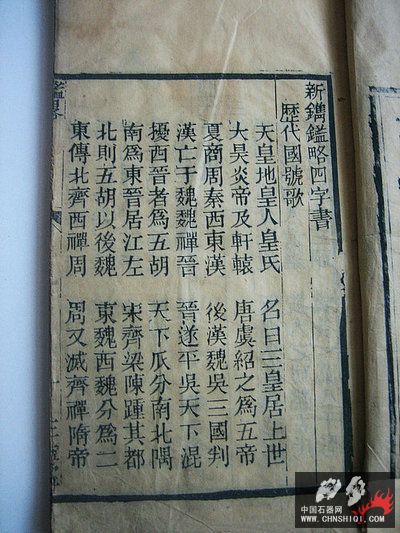 新鐫鑑略四字書
歷代國號歌
天皇地皇人皇氏 名曰三皇居上世
大昊炎帝及軒轅 唐虞紹之爲五帝
夏商周秦西東漢 後漢魏吳三國判
漢亡于魏魏禪晉 晉遂平吳天下混
擾西晉者爲五胡 天下瓜分南北隅
南爲東晉居江左 宋齊梁陳踵其都
北則五胡以後魏 東魏西魏分爲二
東傳北齊西禪周 周又滅齊禪隋帝
中国石器网
WWW.CHNSHIQI.COM